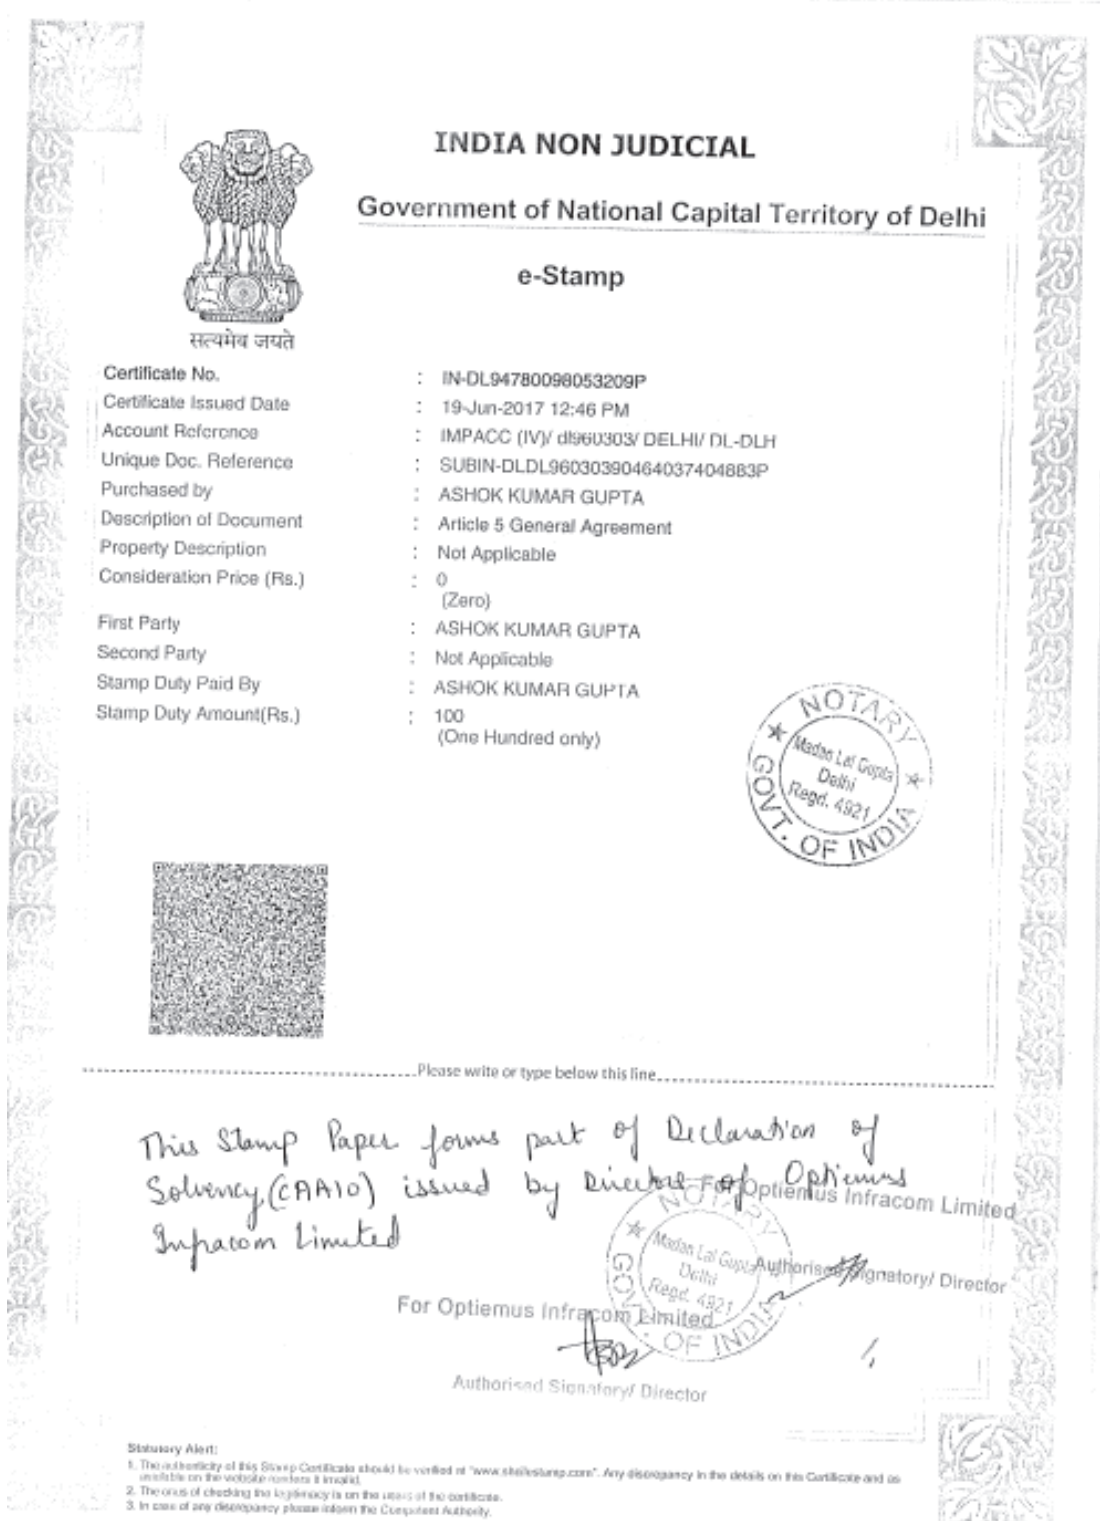 INDIA NON JUDICIAL
Government of National Capital Territory of Delhi
e-Stamp
सत्यमेव जयते
Certificate No. : IN-DL94780098053209P
Certificate Issued Date : 19-Jun-2017 12:46 PM
Account Reference : IMPACC (IV)/ dl960303/ DELHI/ DL-DLH
Unique Doc. Reference : SUBIN-DLDL96030390464037404883P
Purchased by : ASHOK KUMAR GUPTA
Description of Document : Article 5 General Agreement
Property Description : Not Applicable
Consideration Price (Rs.) : 0
(Zero)
First Party : ASHOK KUMAR GUPTA
Second Party : Not Applicable
Stamp Duty Paid By : ASHOK KUMAR GUPTA
Stamp Duty Amount(Rs.) : 100
(One Hundred only)
NOTARY
Madan Lal Gupta
Delhi
Regd. 4921
GOVT. OF INDIA
Please write or type below this line
This Stamp Paper forms part of Declaration of
Solvency (CAA10) issued by Directors of Optiemus
Infracom Limited
For Optiemus Infracom Limited
Authorised Signatory/ Director
NOTARY
Madan Lal Gupta
Delhi
Regd. 4921
GOVT. OF INDIA
For Optiemus Infracom Limited
Authorised Signatory/ Director
Statutory Alert:
1. The authenticity of this Stamp Certificate should be verified at "www.shcilestamp.com". Any discrepancy in the details on this Certificate and as
available on the website renders it invalid.
2. The onus of checking the legitimacy is on the users of the certificate.
3. In case of any discrepancy please inform the Competent Authority.